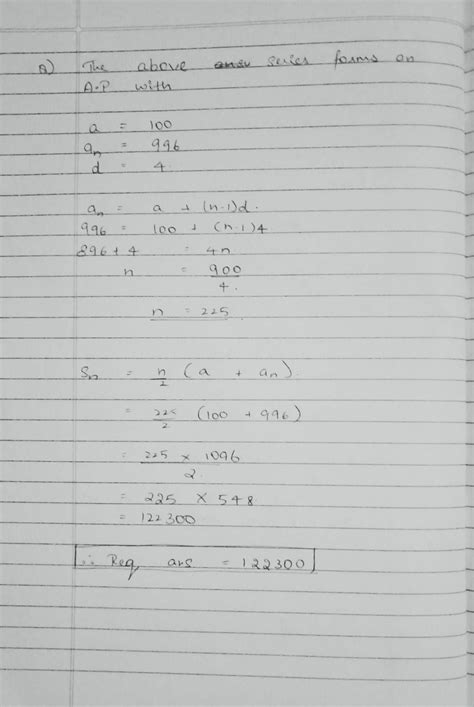 A) The above series forms an
A.P with
a = 100
aₙ = 996
d = 4.
aₙ = a + (n-1)d.
996 = 100 + (n-1)4
896 + 4 = 4n
n = 900/4.
n = 225
Sₙ = n/2 (a + aₙ).
= 225/2 (100 + 996)
= 225 × 1096/2.
= 225 × 548
= 122300
∴ Req, ans = 122300